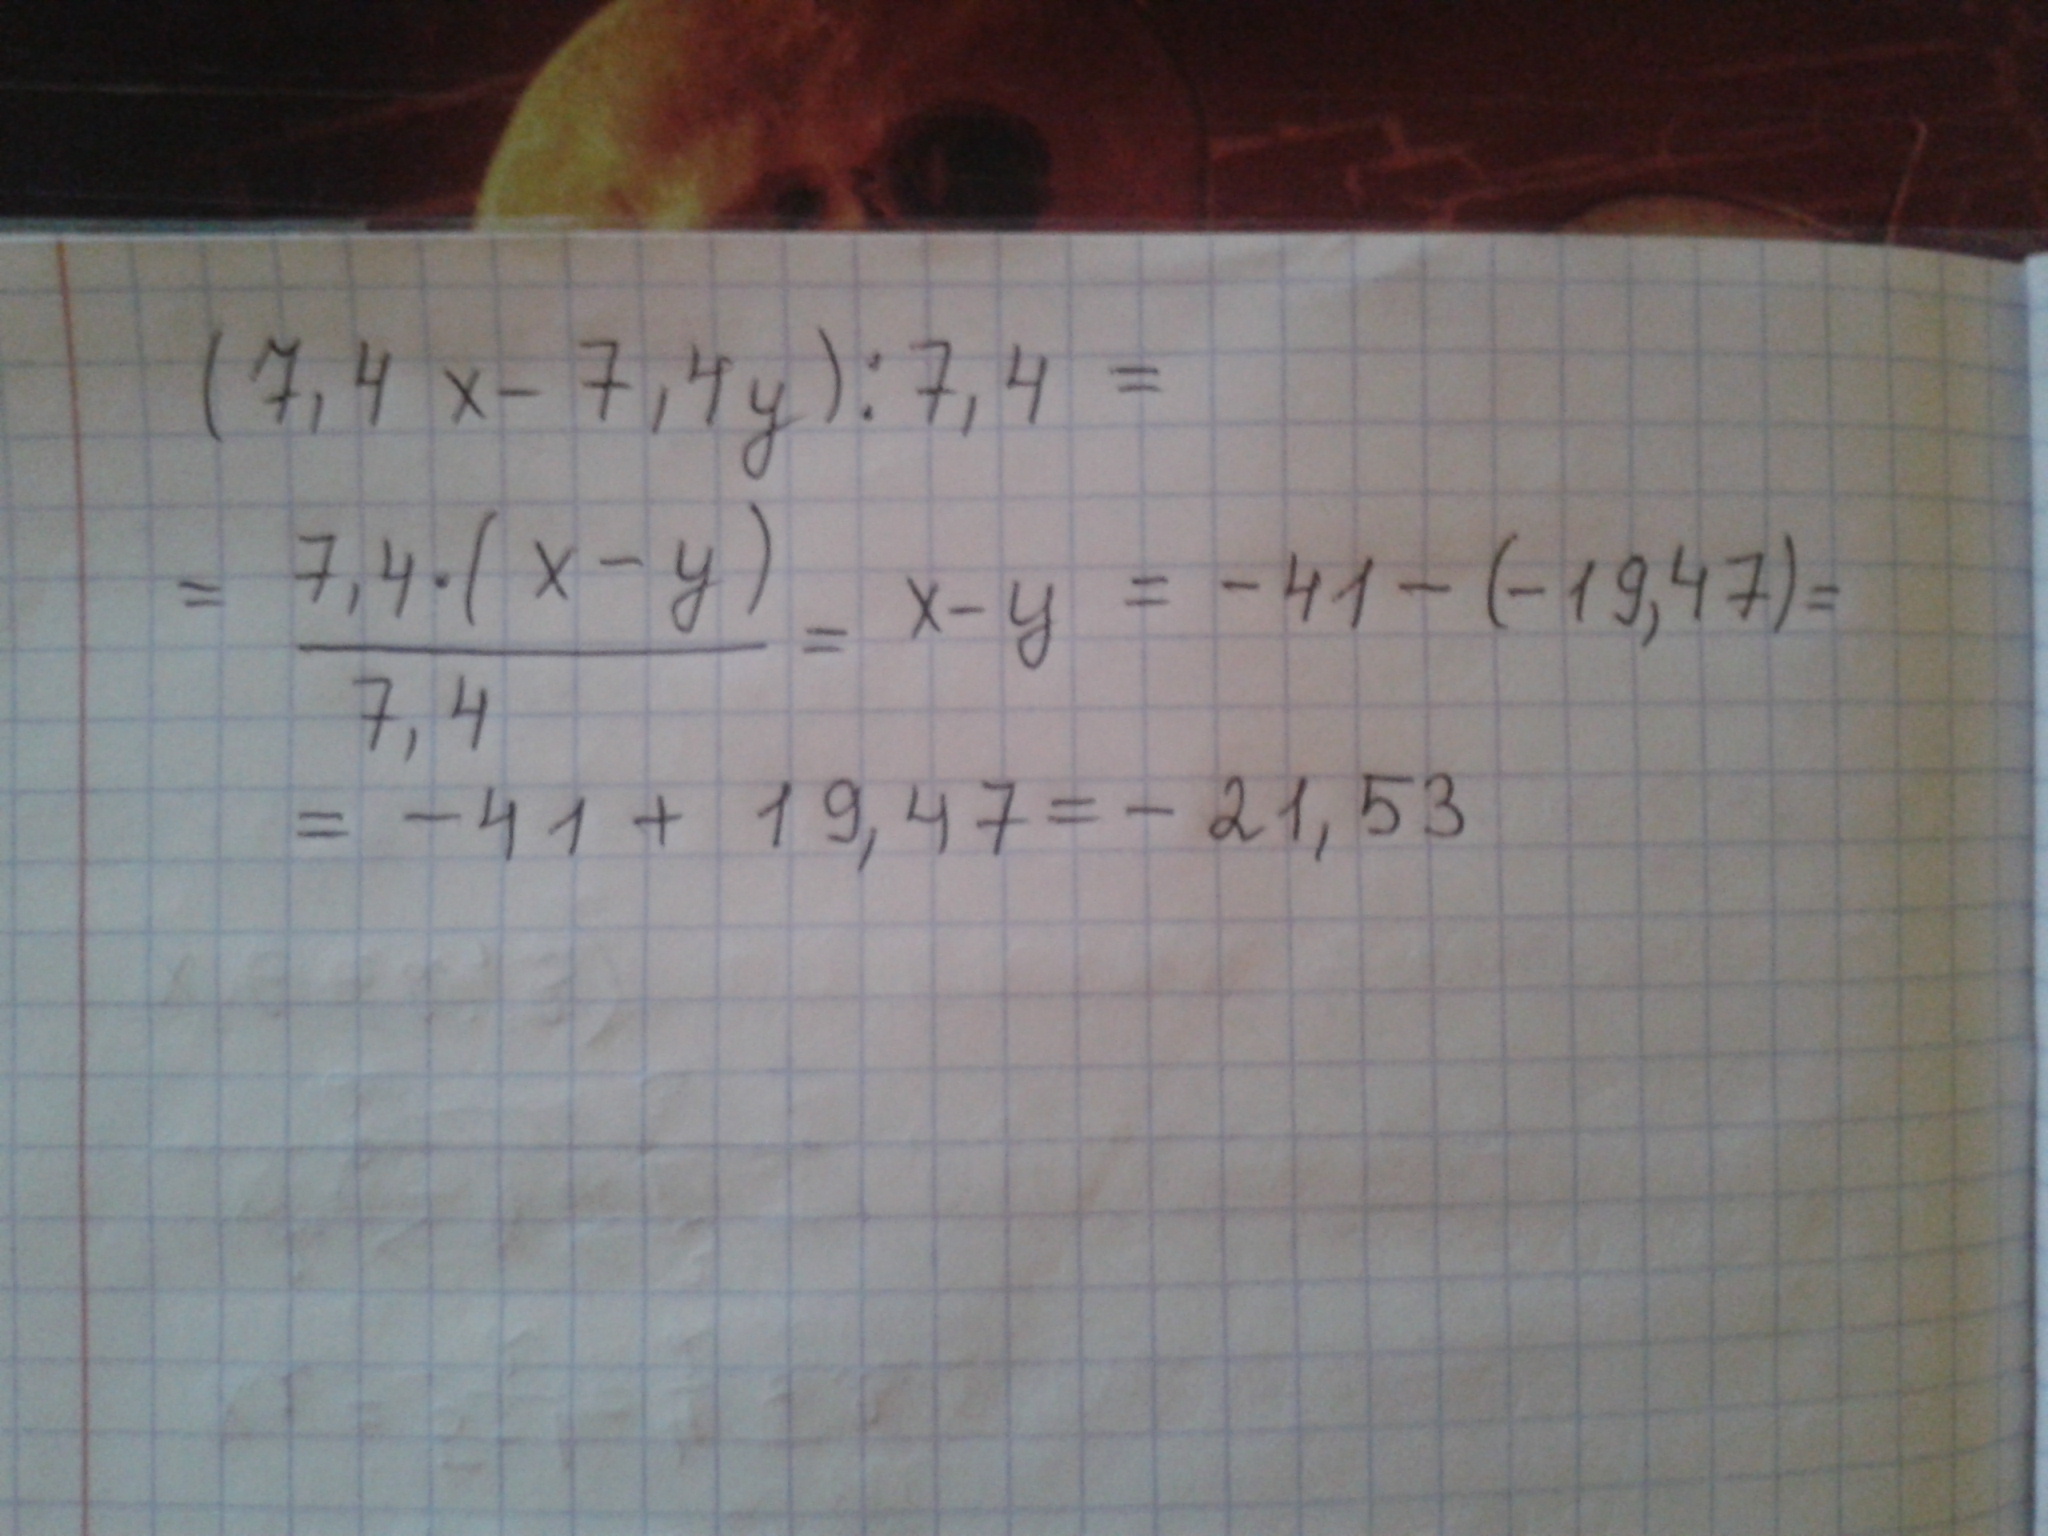 (7,4 x - 7,4y) : 7,4 =
= 7,4·(x - y) / 7,4 = x - y = -41 - (-19,47) =
= -41 + 19,47 = -21,53